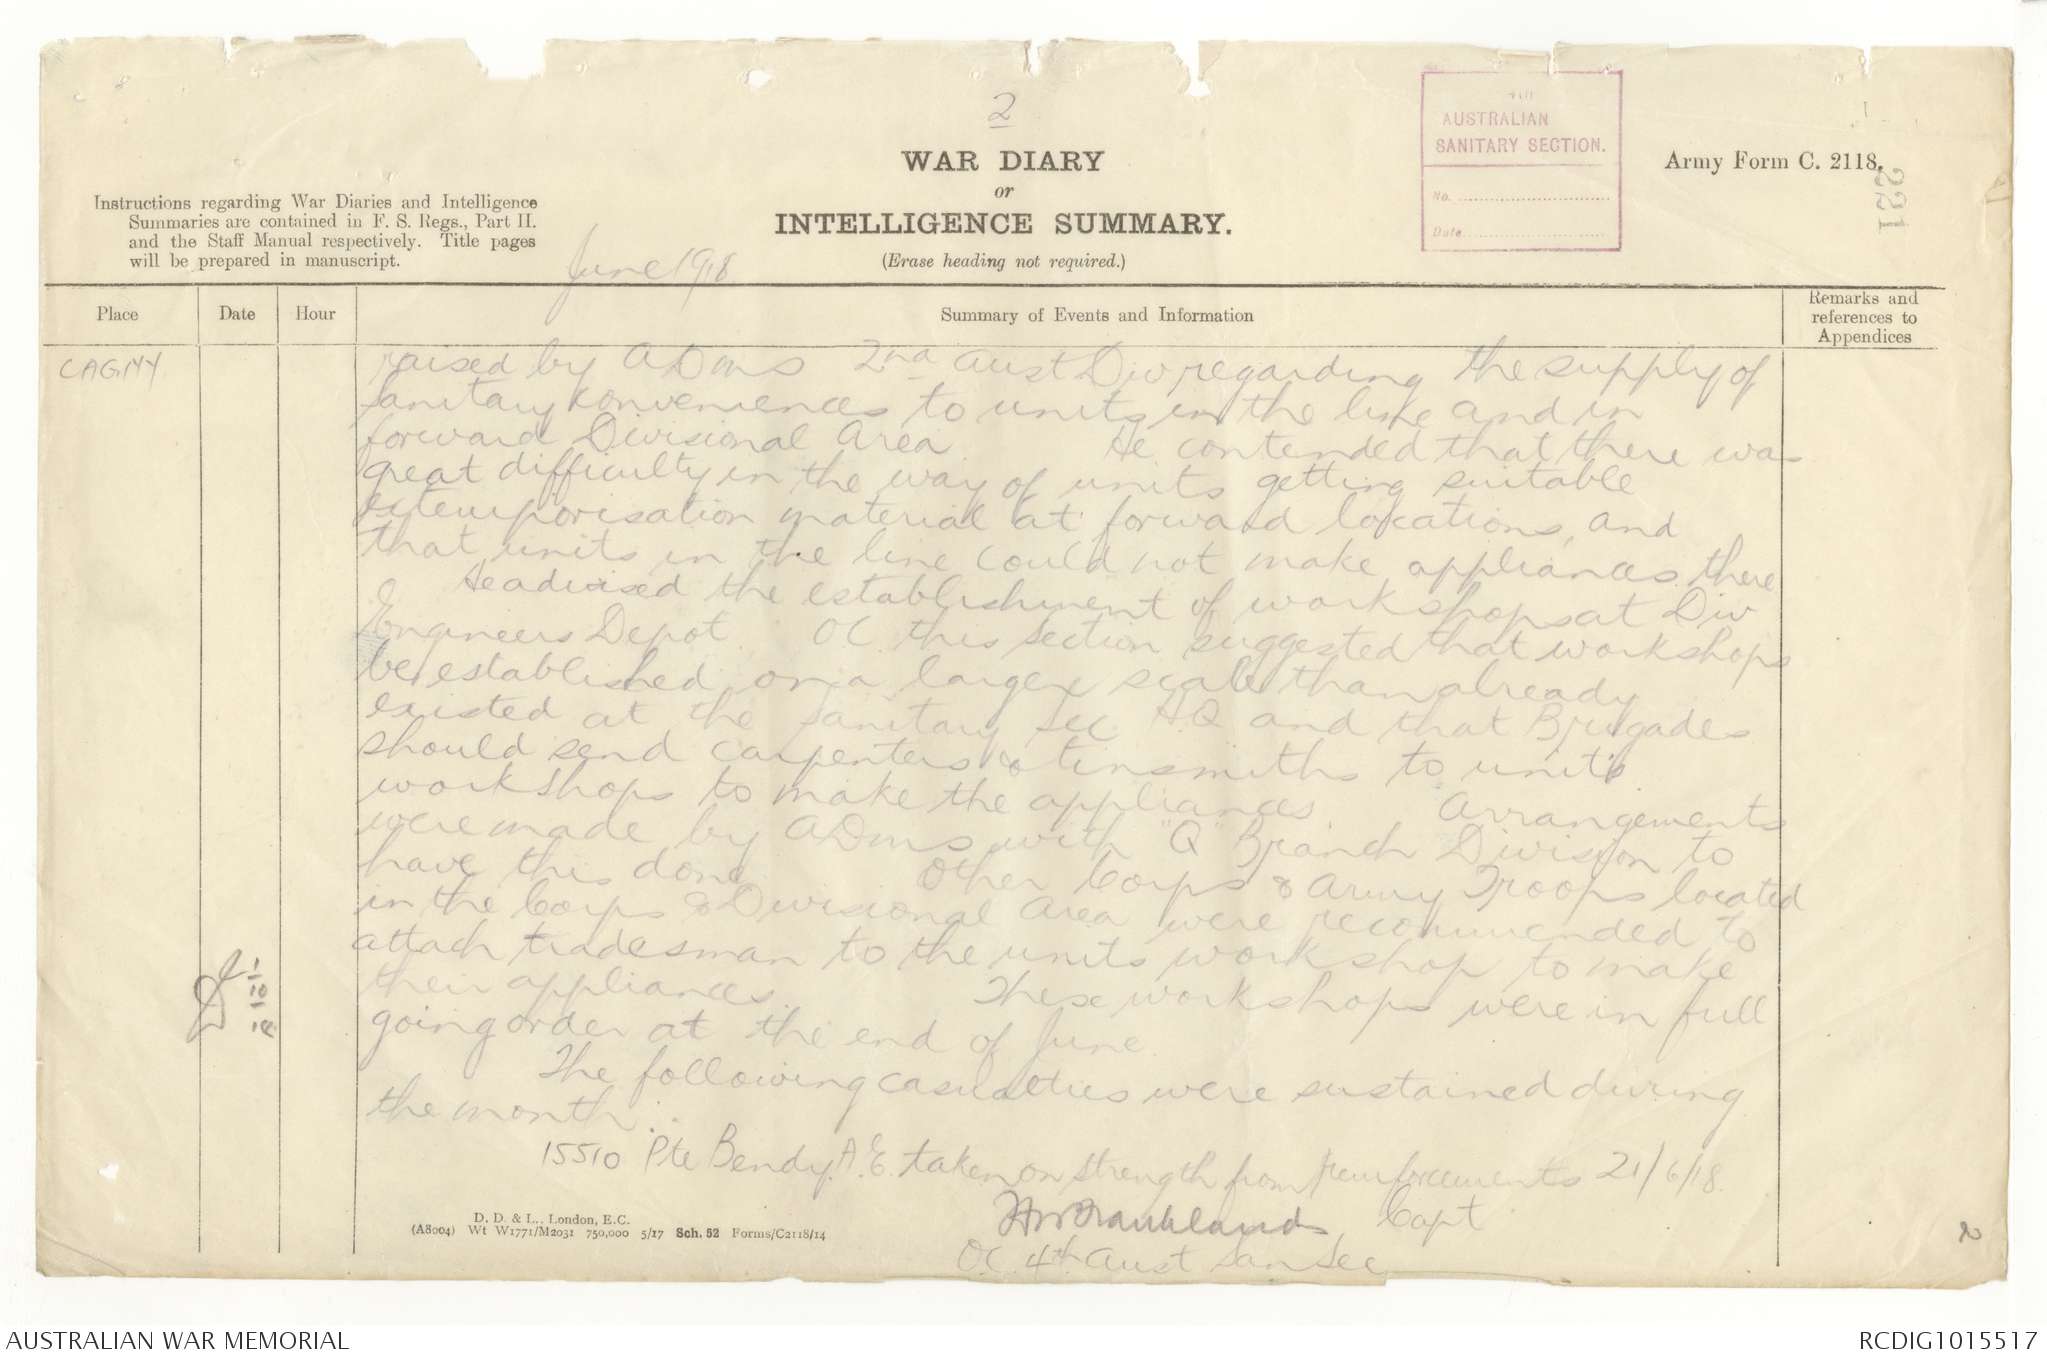 2
WAR DIARY
or
INTELLIGENCE SUMMARY.
(Erase heading not required.)
Instructions regarding War Diaries and Intelligence
Summaries are contained in F. S. Regs., Part II.
and the Staff Manual respectively. Title pages
will be prepared in manuscript.
June 1918
AUSTRALIAN
SANITARY SECTION.
No.
Date
Army Form C. 2118.
221
Place
Date
Hour
Summary of Events and Information
Remarks and
references to
Appendices
CAGNY
raised by ADMS 2nd Aust Div regarding the supply of
sanitary conveniences to units in the line and in
forward Divisional Area. He contended that there was
great difficulty in the way of units getting suitable
extemporisation material at forward locations, and
that units in the line could not make appliances there
He advised the establishment of workshops at Div
Engineers Depot. OC this section suggested that workshops
be established on a larger scale than already
existed at the Sanitary Sec HQ and that Brigades
should send carpenters & tinsmiths to units
workshops to make the appliances. Arrangements
were made by ADMS with "Q" Branch Division to
have this done. Other Corps & Army Troops located
in the Corps & Divisional Area were recommended to
attach tradesman to the units workshop to make
their appliances. These workshops were in full
going order at the end of June
The following casualties were sustained during
the month:-
15510 Pte Bendy A. E. taken on strength from reinforcements 21/6/18.
HWFranklands Capt
OC. 4th Aust San Sec
1/10/18
D. D. & L., London, E.C.
(A8004) Wt W1771/M2031 750,000 5/17 Sch. 52 Forms/C2118/14
2
AUSTRALIAN WAR MEMORIAL
RCDIG1015517